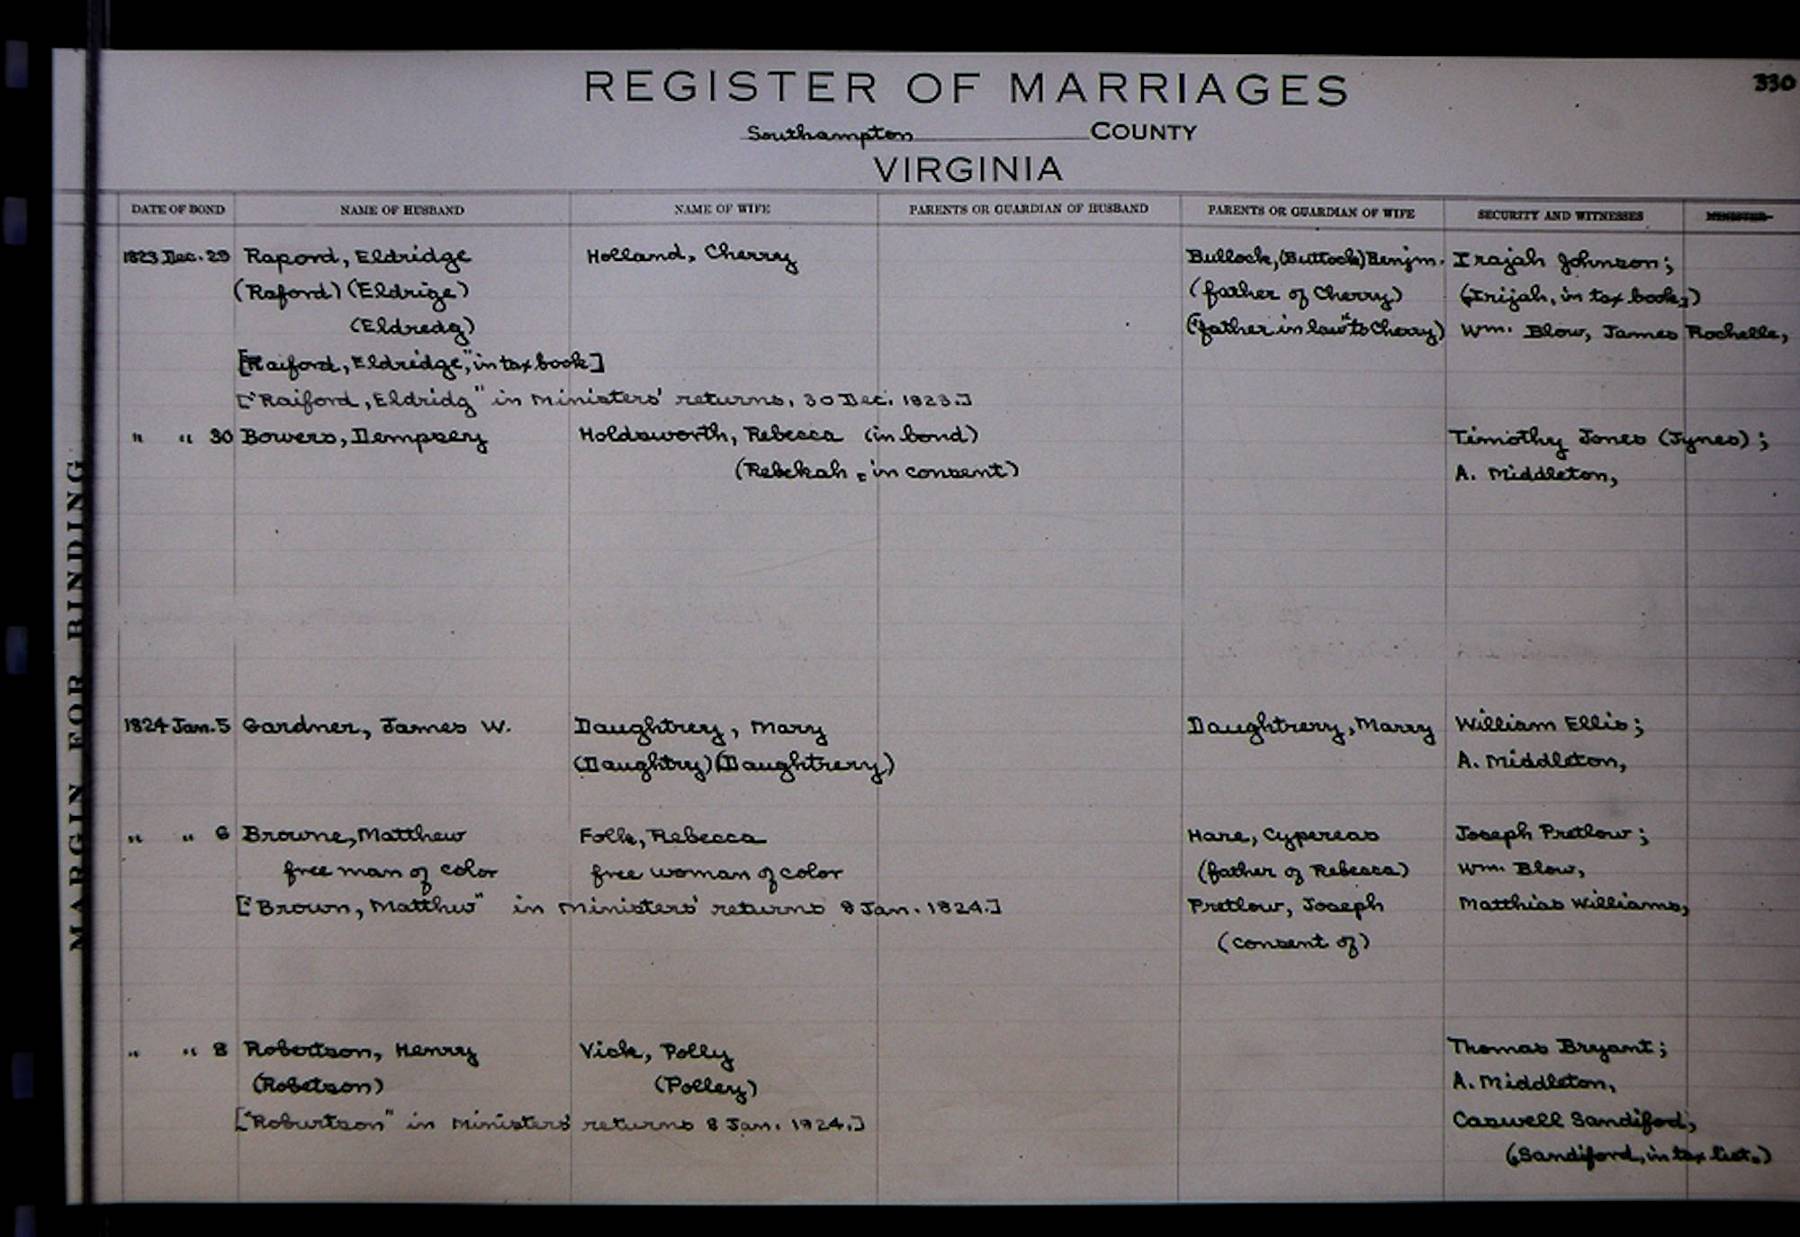 REGISTER OF MARRIAGES
330
Southampton COUNTY
VIRGINIA
DATE OF BOND NAME OF HUSBAND NAME OF WIFE PARENTS OR GUARDIAN OF HUSBAND PARENTS OR GUARDIAN OF WIFE SECURITY AND WITNESSES MINISTER
1823 Dec. 29 Rapord, Eldridge Holland, Cherry Bullock, (Buttock) Benjm. Irajah Johnson;
(Raford) (Eldrige) (father of Cherry) (Irijah, in tax book;)
(Eldredg) ("father in law" to Cherry) Wm. Blow, James Rochelle,
["Raiford, Eldridge," in tax book]
["Raiford, Eldridg" in Ministers' returns, 30 Dec. 1823.]
" " 30 Bowers, Dempsey Holdsworth, Rebecca (in bond) Timothy Jones (Jynes);
(Rebekah, in consent) A. Middleton,
1824 Jan. 5 Gardner, James W. Daughtrey, Mary Daughtrery, Marry William Ellis;
(Daughtry) (Daughtrery) A. Middleton,
" " 6 Browne, Matthew Folk, Rebecca Hare, Cypereas Joseph Pretlow;
free man of color free woman of color (father of Rebecca) Wm. Blow,
["Brown, Matthw" in Ministers' returns 8 Jan. 1824.] Pretlow, Joseph Matthias Williams,
(consent of)
" " 8 Robertson, Henry Vick, Polly Thomas Bryant;
(Robetson) (Polley) A. Middleton,
["Roburtson" in Ministers' returns 8 Jan. 1824.] Caswell Sandifod,
(Sandiford, in tax list.)
MARGIN FOR BINDING